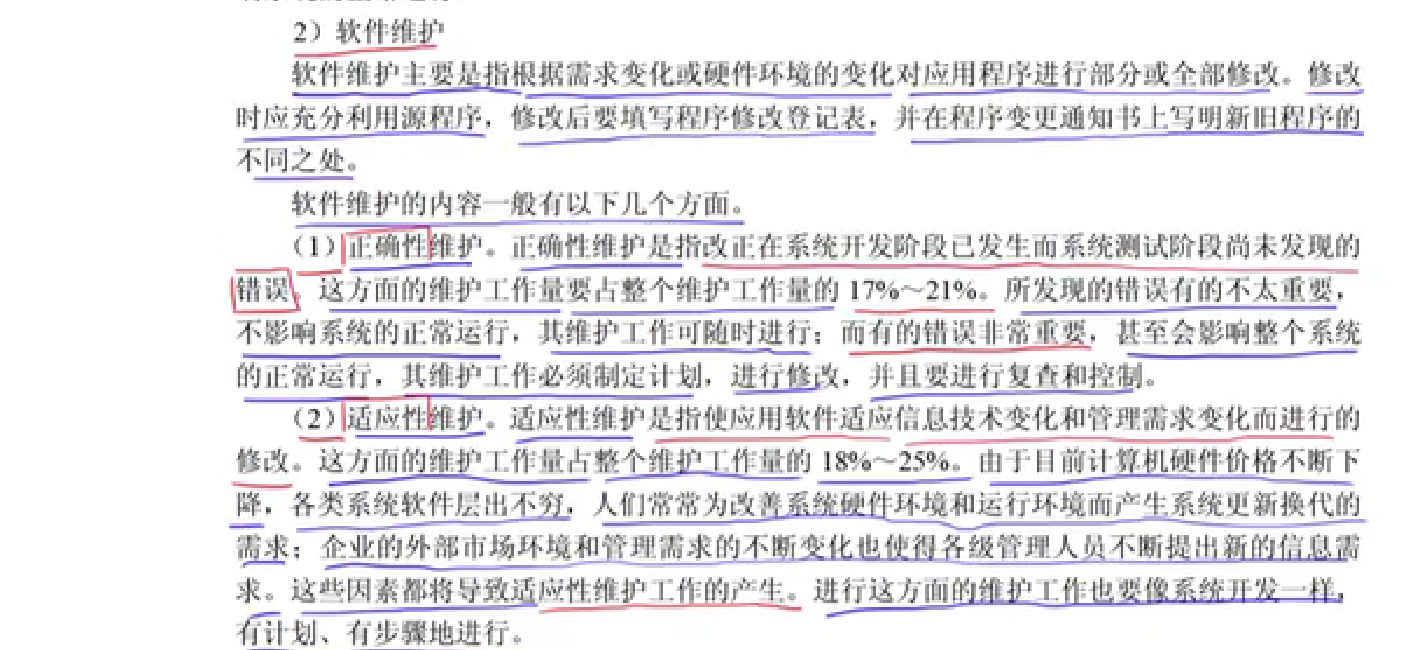 2）软件维护
软件维护主要是指根据需求变化或硬件环境的变化对应用程序进行部分或全部修改。修改
时应充分利用源程序，修改后要填写程序修改登记表，并在程序变更通知书上写明新旧程序的
不同之处。
软件维护的内容一般有以下几个方面。
（1）正确性维护。正确性维护是指改正在系统开发阶段已发生而系统测试阶段尚未发现的
错误。这方面的维护工作量要占整个维护工作量的 17%～21%。所发现的错误有的不太重要，
不影响系统的正常运行，其维护工作可随时进行；而有的错误非常重要，甚至会影响整个系统
的正常运行，其维护工作必须制定计划，进行修改，并且要进行复查和控制。
（2）适应性维护。适应性维护是指使应用软件适应信息技术变化和管理需求变化而进行的
修改。这方面的维护工作量占整个维护工作量的 18%～25%。由于目前计算机硬件价格不断下
降，各类系统软件层出不穷，人们常常为改善系统硬件环境和运行环境而产生系统更新换代的
需求；企业的外部市场环境和管理需求的不断变化也使得各级管理人员不断提出新的信息需
求。这些因素都将导致适应性维护工作的产生。进行这方面的维护工作也要像系统开发一样，
有计划、有步骤地进行。